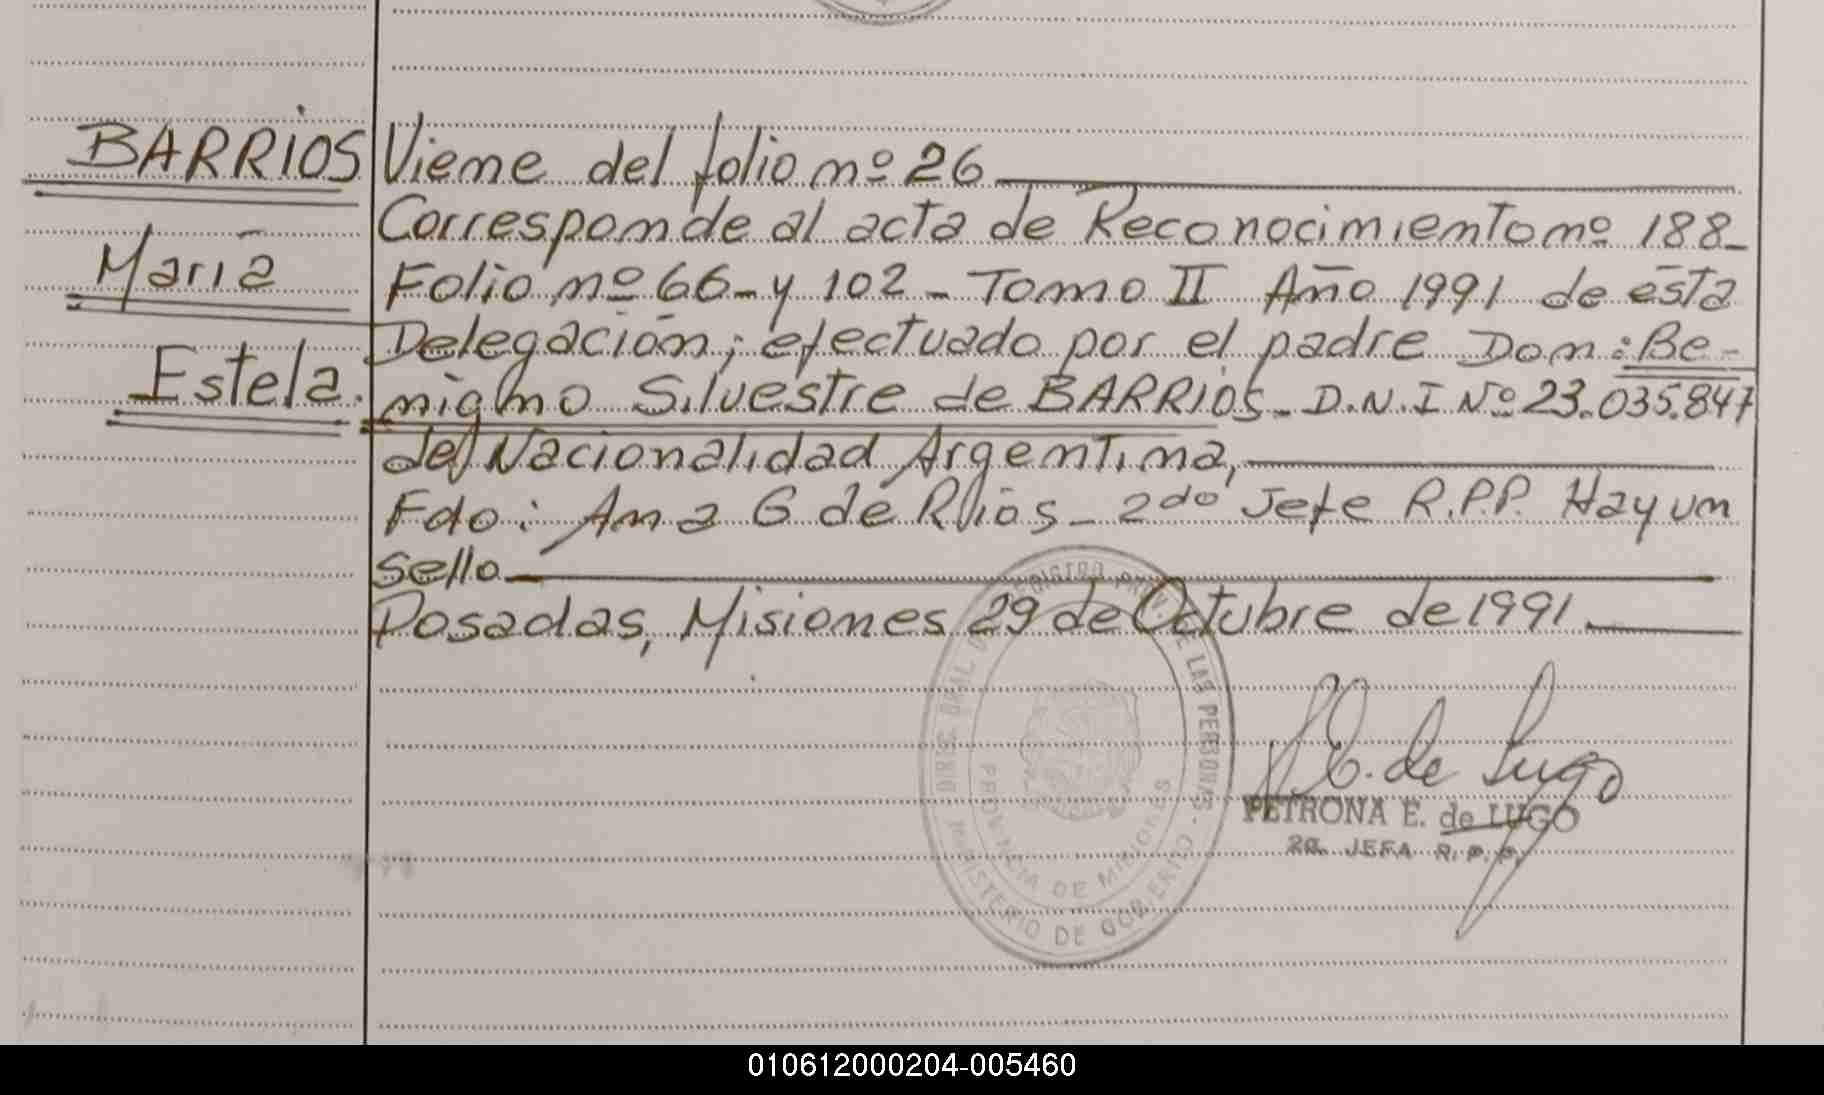 BARRIOS
María
Estela.
Viene del folio nº 26
Corresponde al acta de Reconocimiento nº 188_
Folio nº 66_ y 102 _ Tomo II Año 1991 de esta
Delegación; efectuado por el padre Don: Be-
nigno Silvestre de BARRIOS_ D.N.I Nº 23.035.847
de Nacionalidad Argentina,
Fdo: Ana G de Rios_ 2do Jefe R.P.P. Hay un
sello
Posadas, Misiones 29 de Octubre de 1991
REGISTRO PROV. DE LAS PERSONAS
MINISTERIO DE GOBIERNO
PROVINCIA DE MISIONES
P E. de Lugo
PETRONA E. de LUGO
2a. JEFA R. P. P.
010612000204-005460